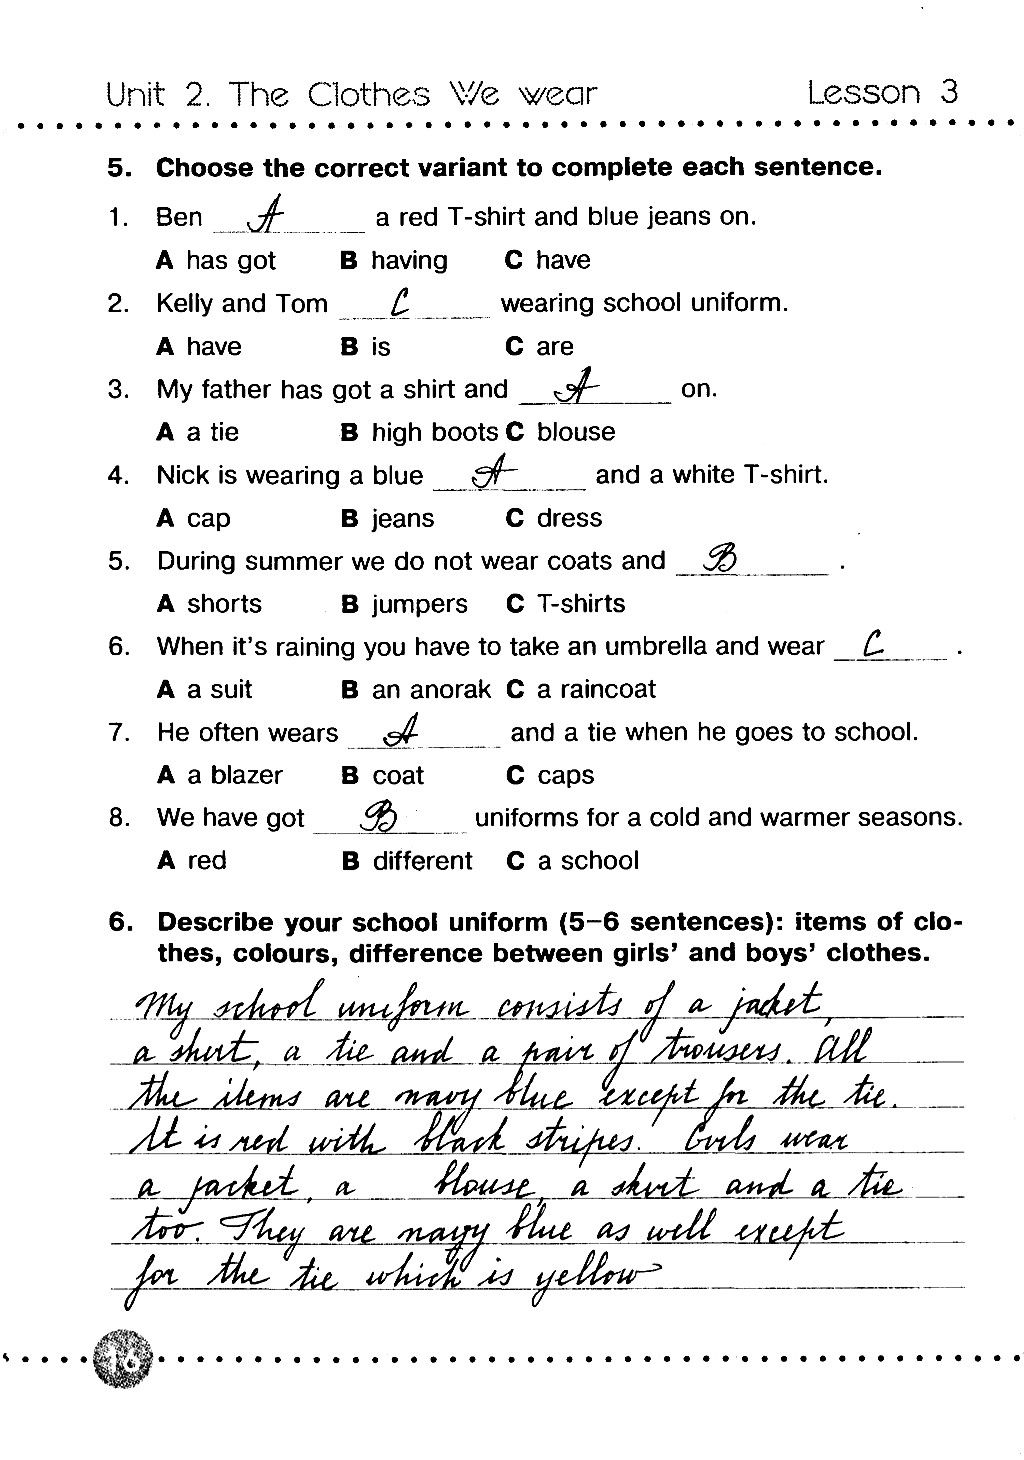 Unit 2. The Clothes We wear Lesson 3
5. Choose the correct variant to complete each sentence.
1. Ben A a red T-shirt and blue jeans on.
A has got B having C have
2. Kelly and Tom C wearing school uniform.
A have B is C are
3. My father has got a shirt and A on.
A a tie B high boots C blouse
4. Nick is wearing a blue A and a white T-shirt.
A cap B jeans C dress
5. During summer we do not wear coats and B .
A shorts B jumpers C T-shirts
6. When it's raining you have to take an umbrella and wear C .
A a suit B an anorak C a raincoat
7. He often wears A and a tie when he goes to school.
A a blazer B coat C caps
8. We have got B uniforms for a cold and warmer seasons.
A red B different C a school
6. Describe your school uniform (5–6 sentences): items of clo-
thes, colours, difference between girls' and boys' clothes.
My school uniform consists of a jacket,
a shirt, a tie and a pair of trousers. All
the items are navy blue except for the tie.
It is red with black stripes. Girls wear
a jacket, a blouse, a skirt and a tie
too. They are navy blue as well except
for the tie which is yellow
16